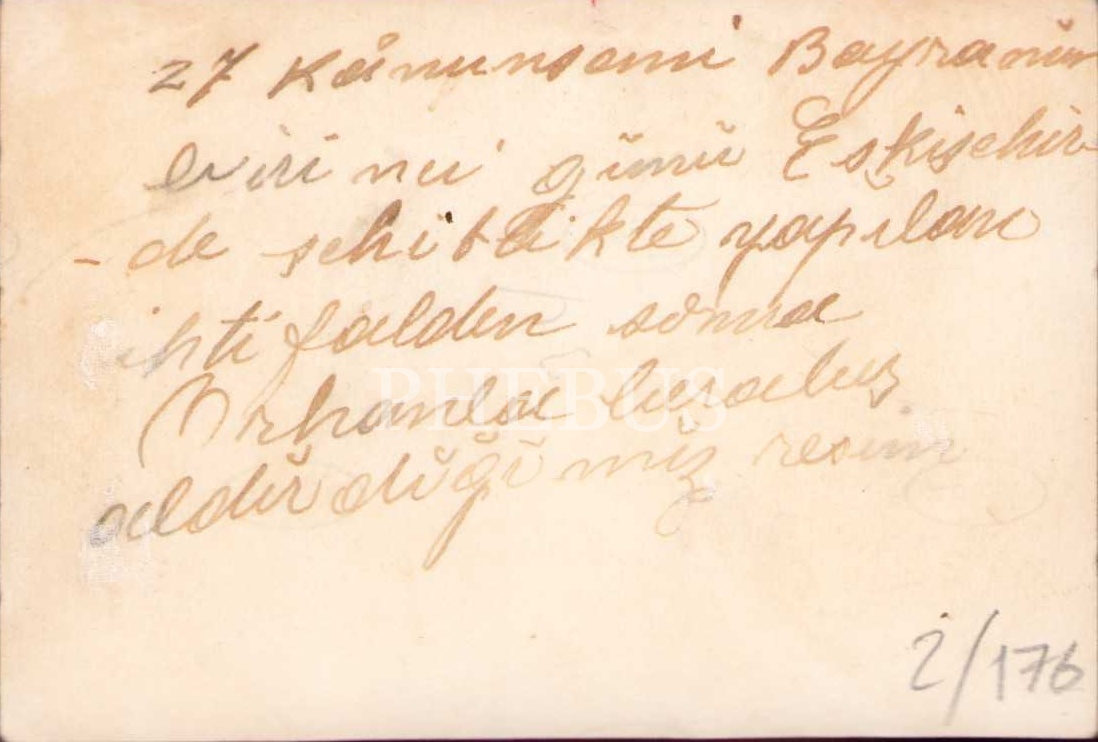 27 Kânunsani Bayramın
birinci günü Eskişehir-
-de şehitlikte yapılan
ihtifalden sonra
Orhanla beraber
aldırdığımız resim
PHEBUS
2/176